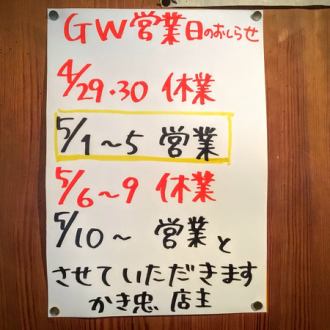 GW営業日のおしらせ
4/29・30 休業
5/1～5 営業
5/6～9 休業
5/10～ 営業と
させていただきます
かき忠 店主